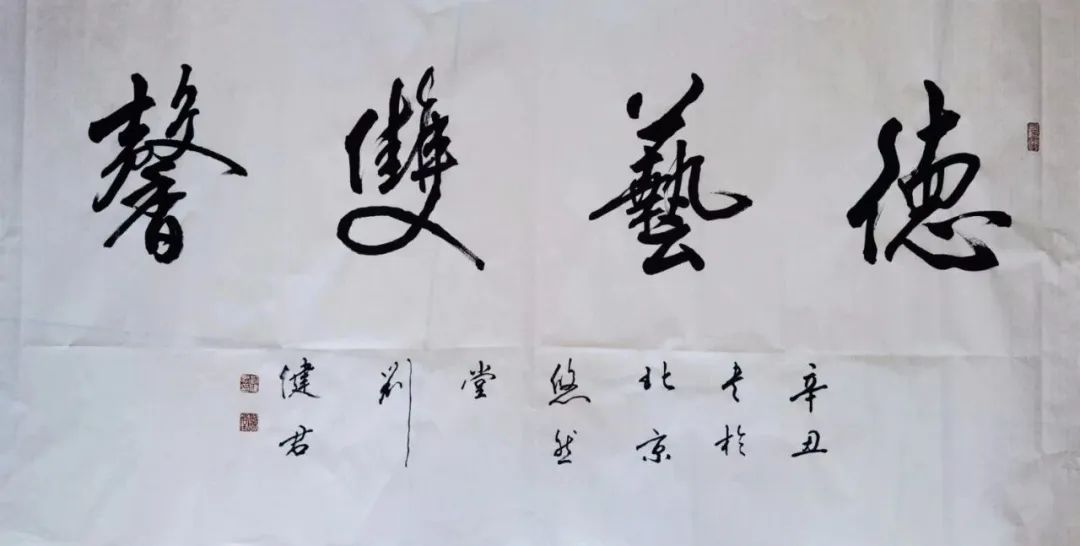 德藝雙馨
辛丑
書於
北京
悠然
堂
劉
健君